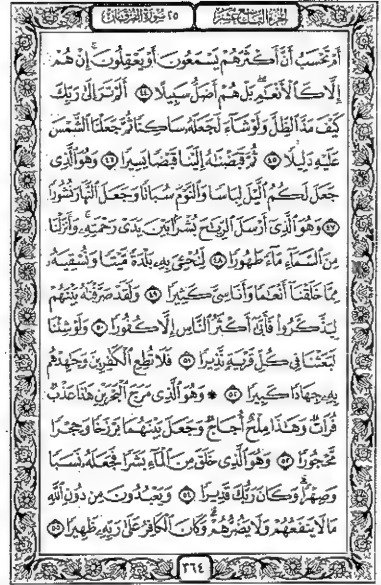 الجزء التاسع عشر
٢٥ سورة الفرقان
أَمْ تَحْسَبُ أَنَّ أَكْثَرَهُمْ يَسْمَعُونَ أَوْ يَعْقِلُونَ ۚ إِنْ هُمْ
إِلَّا كَالْأَنْعَٰمِ ۖ بَلْ هُمْ أَضَلُّ سَبِيلًا ٤٤ أَلَمْ تَرَ إِلَىٰ رَبِّكَ
كَيْفَ مَدَّ الظِّلَّ وَلَوْ شَاءَ لَجَعَلَهُ سَاكِنًا ثُمَّ جَعَلْنَا الشَّمْسَ
عَلَيْهِ دَلِيلًا ٤٥ ثُمَّ قَبَضْنَٰهُ إِلَيْنَا قَبْضًا يَسِيرًا ٤٦ وَهُوَ الَّذِى
جَعَلَ لَكُمُ الَّيْلَ لِبَاسًا وَالنَّوْمَ سُبَاتًا وَجَعَلَ النَّهَارَ نُشُورًا
٤٧ وَهُوَ الَّذِى أَرْسَلَ الرِّيَٰحَ بُشْرًا بَيْنَ يَدَىْ رَحْمَتِهِ ۚ وَأَنزَلْنَا
مِنَ السَّمَاءِ مَاءً طَهُورًا ٤٨ لِّنُحْۦِىَ بِهِ بَلْدَةً مَّيْتًا وَنُسْقِيَهُ
مِمَّا خَلَقْنَا أَنْعَٰمًا وَأَنَاسِىَّ كَثِيرًا ٤٩ وَلَقَدْ صَرَّفْنَٰهُ بَيْنَهُمْ
لِيَذَّكَّرُوا فَأَبَىٰ أَكْثَرُ النَّاسِ إِلَّا كُفُورًا ٥٠ وَلَوْ شِئْنَا
لَبَعَثْنَا فِى كُلِّ قَرْيَةٍ نَّذِيرًا ٥١ فَلَا تُطِعِ الْكَٰفِرِينَ وَجَٰهِدْهُم
بِهِ جِهَادًا كَبِيرًا ٥٢ ۞ وَهُوَ الَّذِى مَرَجَ الْبَحْرَيْنِ هَٰذَا عَذْبٌ
فُرَاتٌ وَهَٰذَا مِلْحٌ أُجَاجٌ وَجَعَلَ بَيْنَهُمَا بَرْزَخًا وَحِجْرًا
مَّحْجُورًا ٥٣ وَهُوَ الَّذِى خَلَقَ مِنَ الْمَاءِ بَشَرًا فَجَعَلَهُ نَسَبًا
وَصِهْرًا ۗ وَكَانَ رَبُّكَ قَدِيرًا ٥٤ وَيَعْبُدُونَ مِن دُونِ اللَّهِ
مَا لَا يَنفَعُهُمْ وَلَا يَضُرُّهُمْ ۗ وَكَانَ الْكَافِرُ عَلَىٰ رَبِّهِ ظَهِيرًا ٥٥
٣٦٤